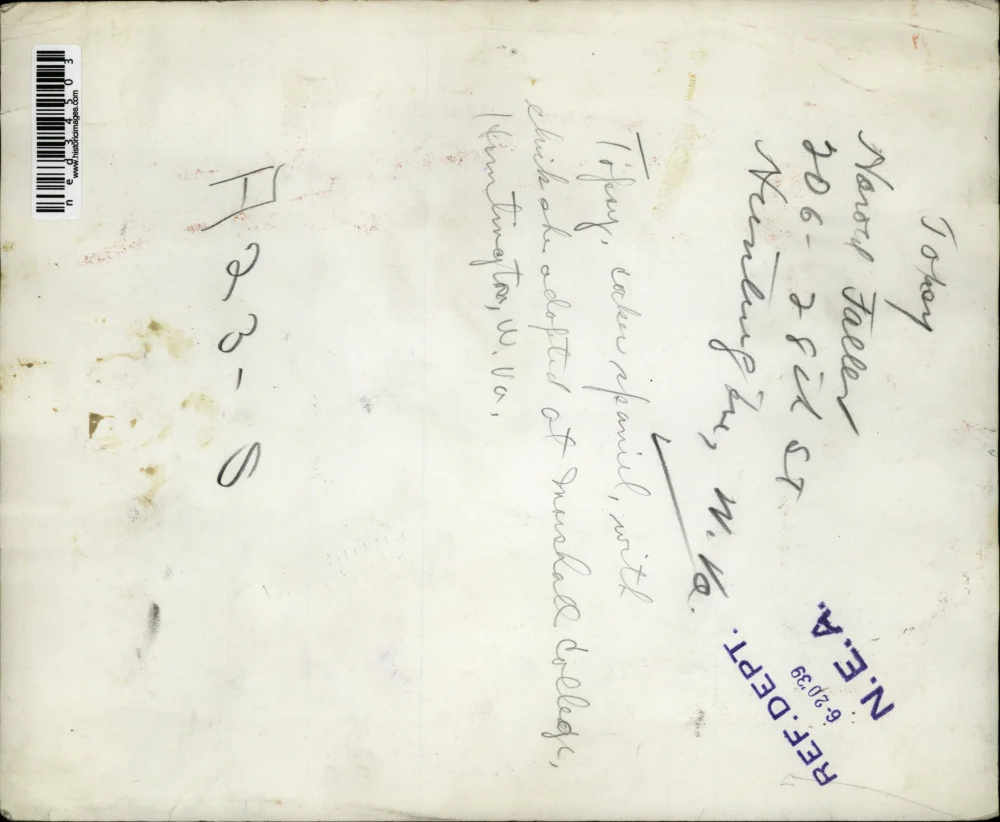 Topsy
Harold Faller
206 - 28th St
Huntington, W. Va.
Topsy, cocker spaniel, with
chick she adopted at Marshall College,
Huntington, W. Va.
A 23-6
REF. DEPT.
6-20 39
N. E. A.
ned34503
www.historicimages.com